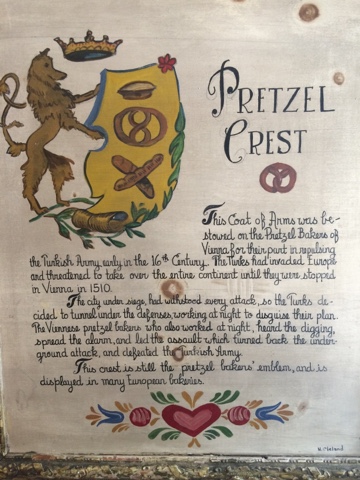 PRETZEL
CREST
This Coat of Arms was be-
stowed on the Pretzel Bakers of
Vienna for their part in repelling
the Turkish Army early in the 16th Century. The Turks had invaded Europe
and threatened to take over the entire continent until they were stopped
in Vienna in 1510.
The city under siege, had withstood every attack, so the Turks de-
cided to tunnel under the defenses, working at night to disguise their plan.
The Viennese pretzel bakers who also worked at night, heard the digging,
spread the alarm, and led the assault which turned back the under-
ground attack, and defeated the Turkish Army.
This crest is still the pretzel bakers' emblem, and is
displayed in many European bakeries.